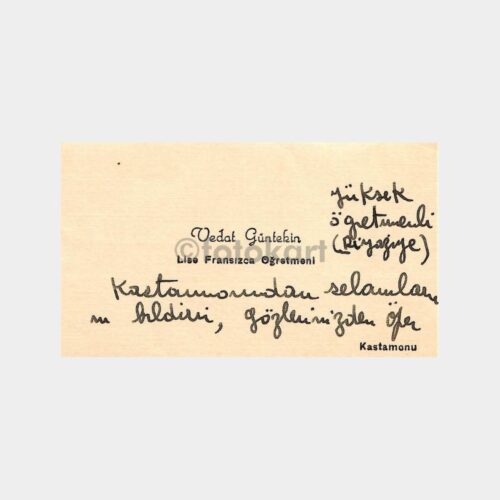 yüksek
öğretmenli
(Riyaziye)
Vedat Güntekin
©fotokart
Lise Fransızca Öğretmeni
Kastamonudan selamları
mı bildirir, gözlerinizden öper
Kastamonu